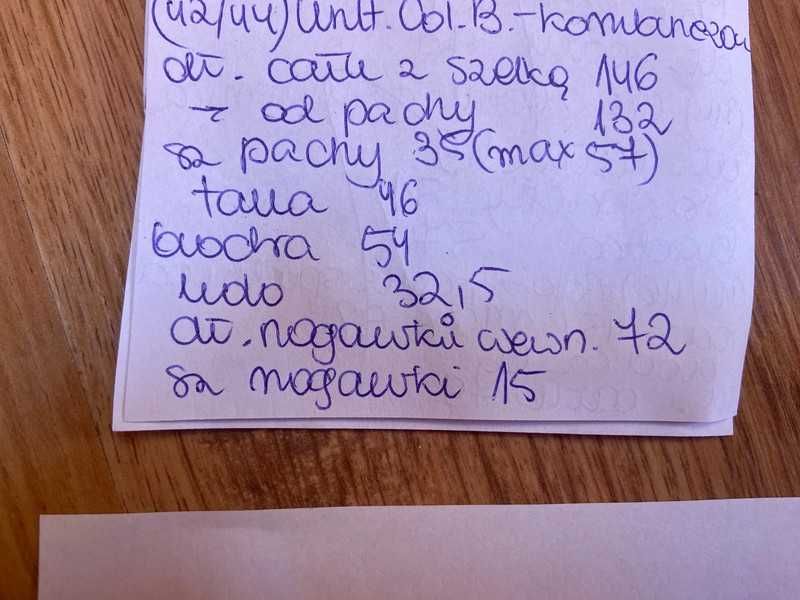 (42/44) Unit. Col. B. - kombinezon
dł. całk z szelką 146
- od pachy 132
sz pachy 35 (max 57)
talia 46
biodra 54
udo 32,5
dł. nogawki wewn. 72
sz nogawki 15